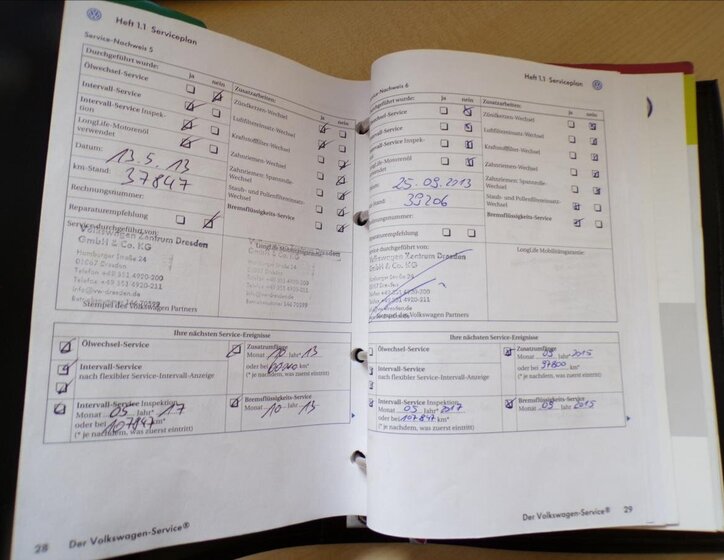 Heft 1.1 Serviceplan
Service-Nachweis 5
Durchgeführt wurde: ja nein Zusatzarbeiten: ja nein
Ölwechsel-Service
Zündkerzen-Wechsel
Intervall-Service
Luftfiltereinsatz-Wechsel
Intervall-Service Inspek-
tion
Kraftstofffilter-Wechsel
LongLife-Motorenöl
verwendet
Zahnriemen-Wechsel
Datum: 13.5.13
Zahnriemen- Spannrolle-
Wechsel
km-Stand: 37847
Staub- und Pollenfiltereinsatz-
Wechsel
Rechnungsnummer:
Bremsflüssigkeits-Service
Reparaturempfehlung
Service durchgeführt von:
LongLife Mobilitätsgarantie:
Volkswagen Zentrum Dresden
GmbH & Co. KG
Hamburger Straße 24
01067 Dresden
Telefon +49 351 4920-200
Telefax +49 351 4920-211
info@vw-dresden.de
Stempel des Volkswagen Partners
Ihre nächsten Service-Ereignisse
Ölwechsel-Service
Zusatzumfänge
Monat 10 Jahr* 13
oder bei km*
(* je nachdem, was zuerst eintritt)
Intervall-Service
nach flexibler Service-Intervall-Anzeige
Intervall-Service Inspektion
Monat 05 Jahr* 17
oder bei 107847 km*
(* je nachdem, was zuerst eintritt)
Bremsflüssigkeits-Service
Monat 10 Jahr 13
28 Der Volkswagen-Service®
Heft 1.1 Serviceplan
-Nachweis 6
geführt wurde: ja nein Zusatzarbeiten: ja nein
chsel-Service
Zündkerzen-Wechsel
ll-Service
Luftfiltereinsatz-Wechsel
ll-Service Inspek-
Kraftstofffilter-Wechsel
Life-Motorenöl
det
Zahnriemen-Wechsel
25.09.2013
Zahnriemen- Spannrolle-
Wechsel
and: 39206
Staub- und Pollenfiltereinsatz-
Wechsel
ungsnummer:
Bremsflüssigkeits-Service
aturempfehlung
durchgeführt von:
LongLife Mobilitätsgarantie:
Volkswagen Zentrum Dresden
GmbH & Co. KG
Hamburger Straße 24
01067 Dresden
Telefon +49 351 4920-200
Telefax +49 351 4920-211
Stempel des Volkswagen Partners
Ihre nächsten Service-Ereignisse
Ölwechsel-Service
Zusatzumfänge
Monat 09 Jahr* 2015
oder bei 97800 km*
(* je nachdem, was zuerst eintritt)
Intervall-Service
nach flexibler Service-Intervall-Anzeige
Intervall-Service Inspektion
Monat 05 Jahr* 2017
oder bei 107847 km*
(* je nachdem, was zuerst eintritt)
Bremsflüssigkeits-Service
Monat 09 Jahr 2015
Der Volkswagen-Service® 29